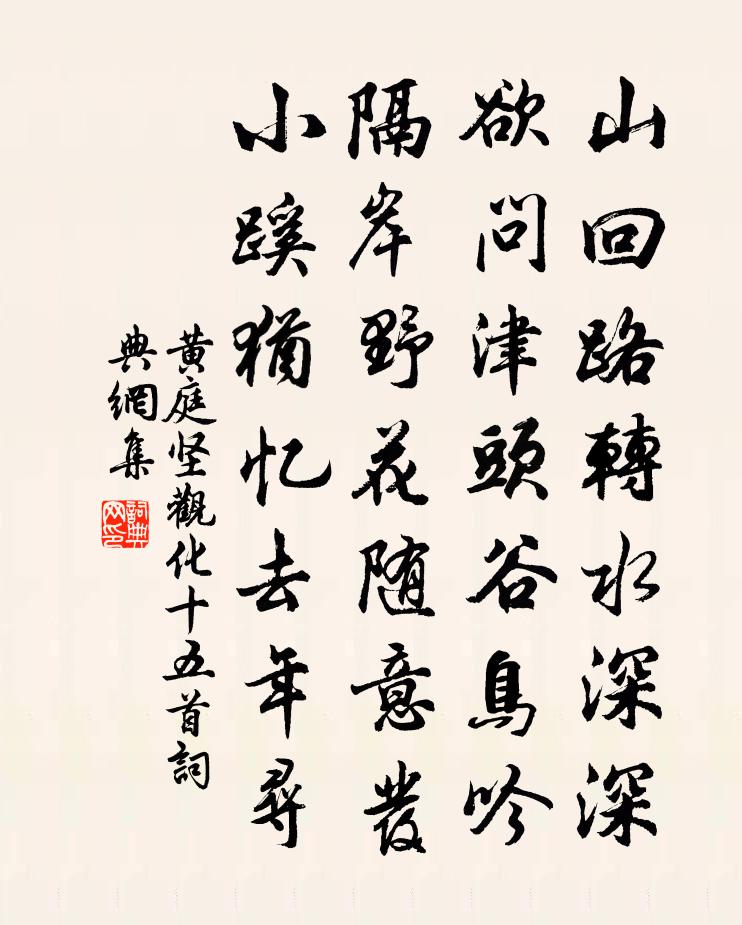 山回路轉水深深
欲問津頭谷鳥吟
隔岸野花随意發
小蹊猶忆去年尋
黄庭坚觀化十五首詞
典網集
詞典
网印